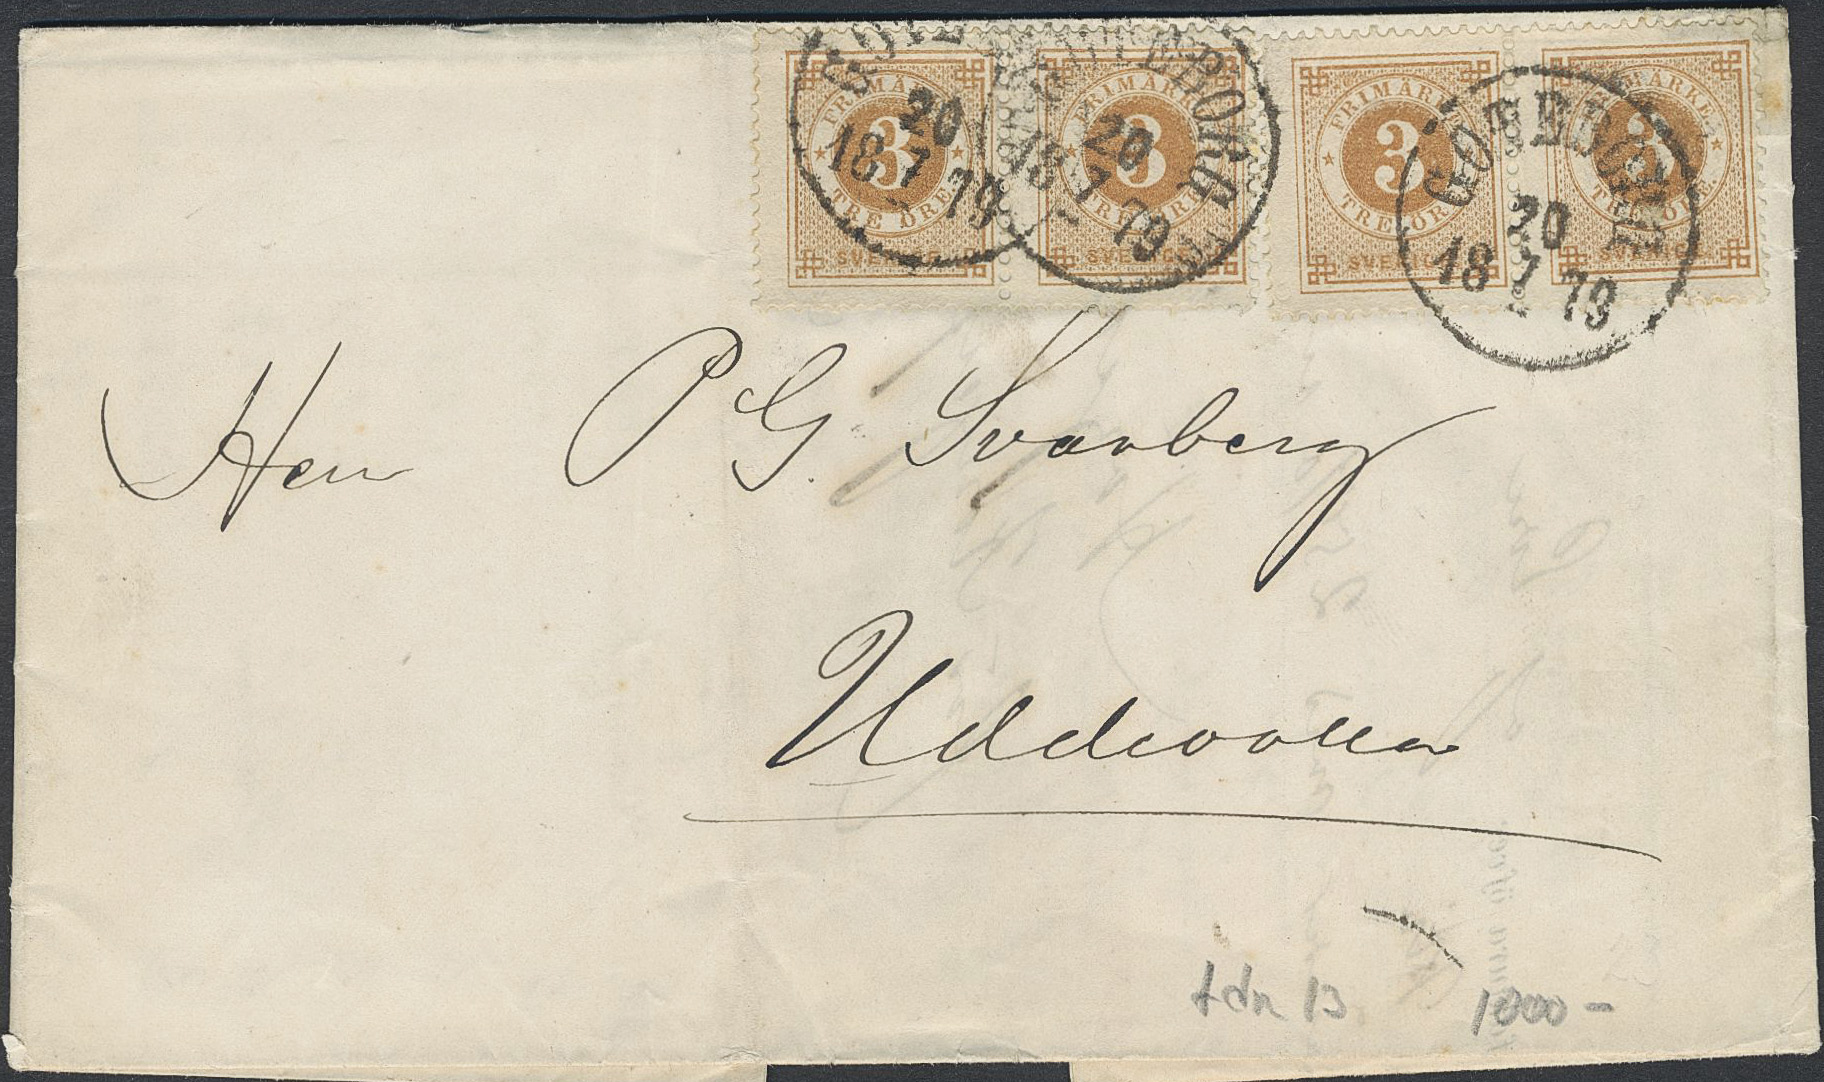 FRIMÄRKE
3
TRE ÖRE
SVERIGE
FRIMÄRKE
3
TRE ÖRE
SVERIGE
FRIMÄRKE
3
TRE ÖRE
SVERIGE
FRIMÄRKE
3
TRE ÖRE
SVERIGE
GÖTEBORG
20
18 7 79
GÖTEBORG
20
18 7 79
GÖTEBORG
20
18 7 79
Herr P. G. Svanberg
Uddevalla
tdn 13 1000 -